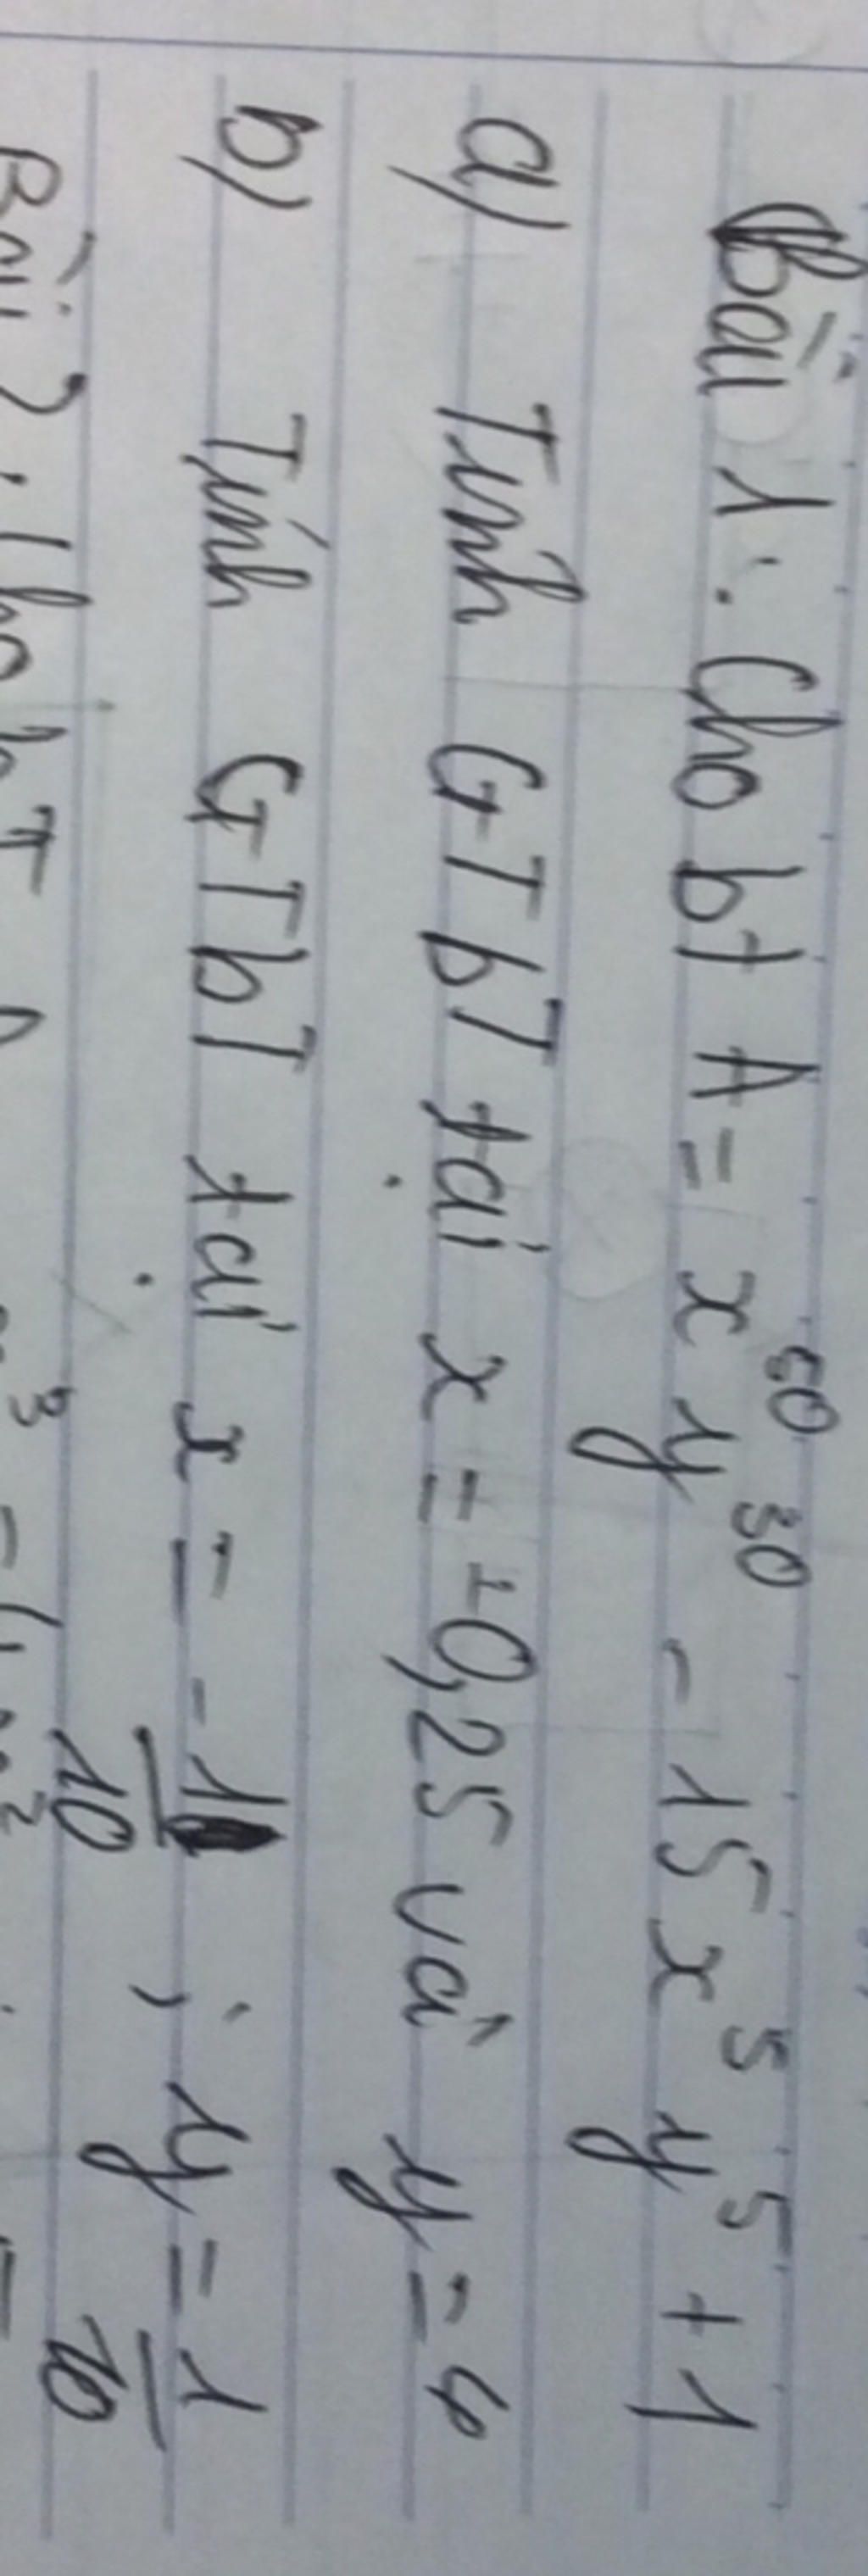 Bài 1: Cho bt A = x⁵⁰y³⁰ - 15x⁵y⁵ + 1
a) Tính GTbT tại x = -0,25 và y = 4
b) Tính GTbT tại x = -1/10 ; y = 1/10
Bài 2: Cho bT